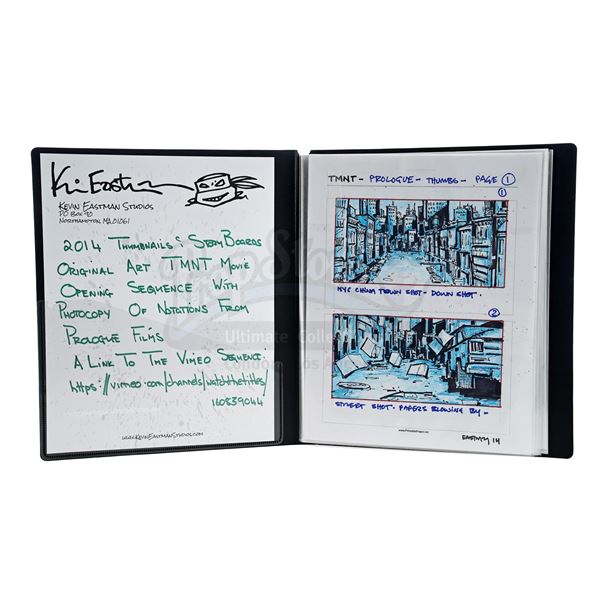 Kevin Eastman
KEVIN EASTMAN STUDIOS
PO BOX 90
NORTHAMPTON MA 01061
2014 THUMBNAILS & STORYBOARDS
ORIGINAL ART TMNT MOVIE
OPENING SEQUENCE WITH
PHOTOCOPY OF NOTATIONS FROM
PROLOGUE FILMS
A LINK TO THE VIMEO SEQUENCE:
https://vimeo.com/channels/watchthetitles/
140839044
www.KevinEastmanStudios.com
TMNT - PROLOGUE - THUMBS - PAGE 1
1
NYC CHINA TOWN SHOT - DOWN SHOT.
2
STREET SHOT. PAPERS BLOWING BY -
EASTMAN 14
Prop Store
Ultimate Collec
London Los A